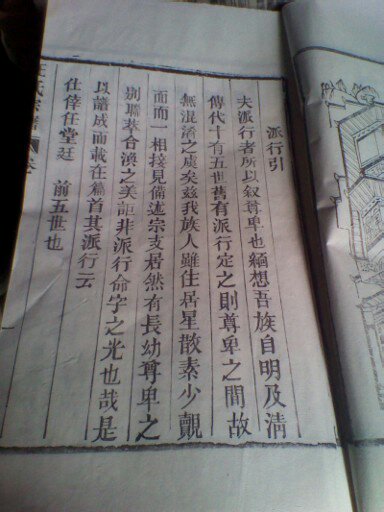 派行引
夫派行者所以叙尊卑也緬想吾族自明及清
傳代十有五世舊有派行定之則尊卑之間故
無混淆之虞矣玆我族人雖住居星散素少覿
面而一相接見備述宗支居然有長幼尊卑之
別聯萃合渙之美詎非派行命字之光也哉是
以譜成而載在篇首其派行云
仕俸任堂廷 前五世也
氏宗譜